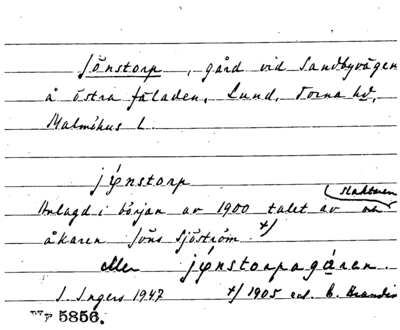 Jönstorp, gård vid Sandbyvägen
å östra fäladen, Lund, Torna hd,
Malmöhus l.
jönstorp
slaktaren
Anlagd i början av 1900 talet av och
åkaren Jöns Sjöström. +/
eller jönstorpagáren.
I. Ingers 1947 +/ 1905 enl. C. Brandin
5856.